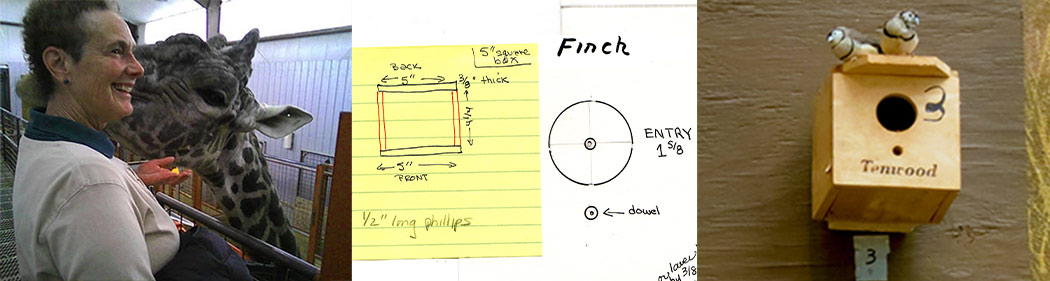 5" square
box
BACK
5"
3/8" thick
5"
FRONT
1/2" long phillips
Finch
ENTRY
1 5/8
dowel
by 3/8
3
Tenwood
3